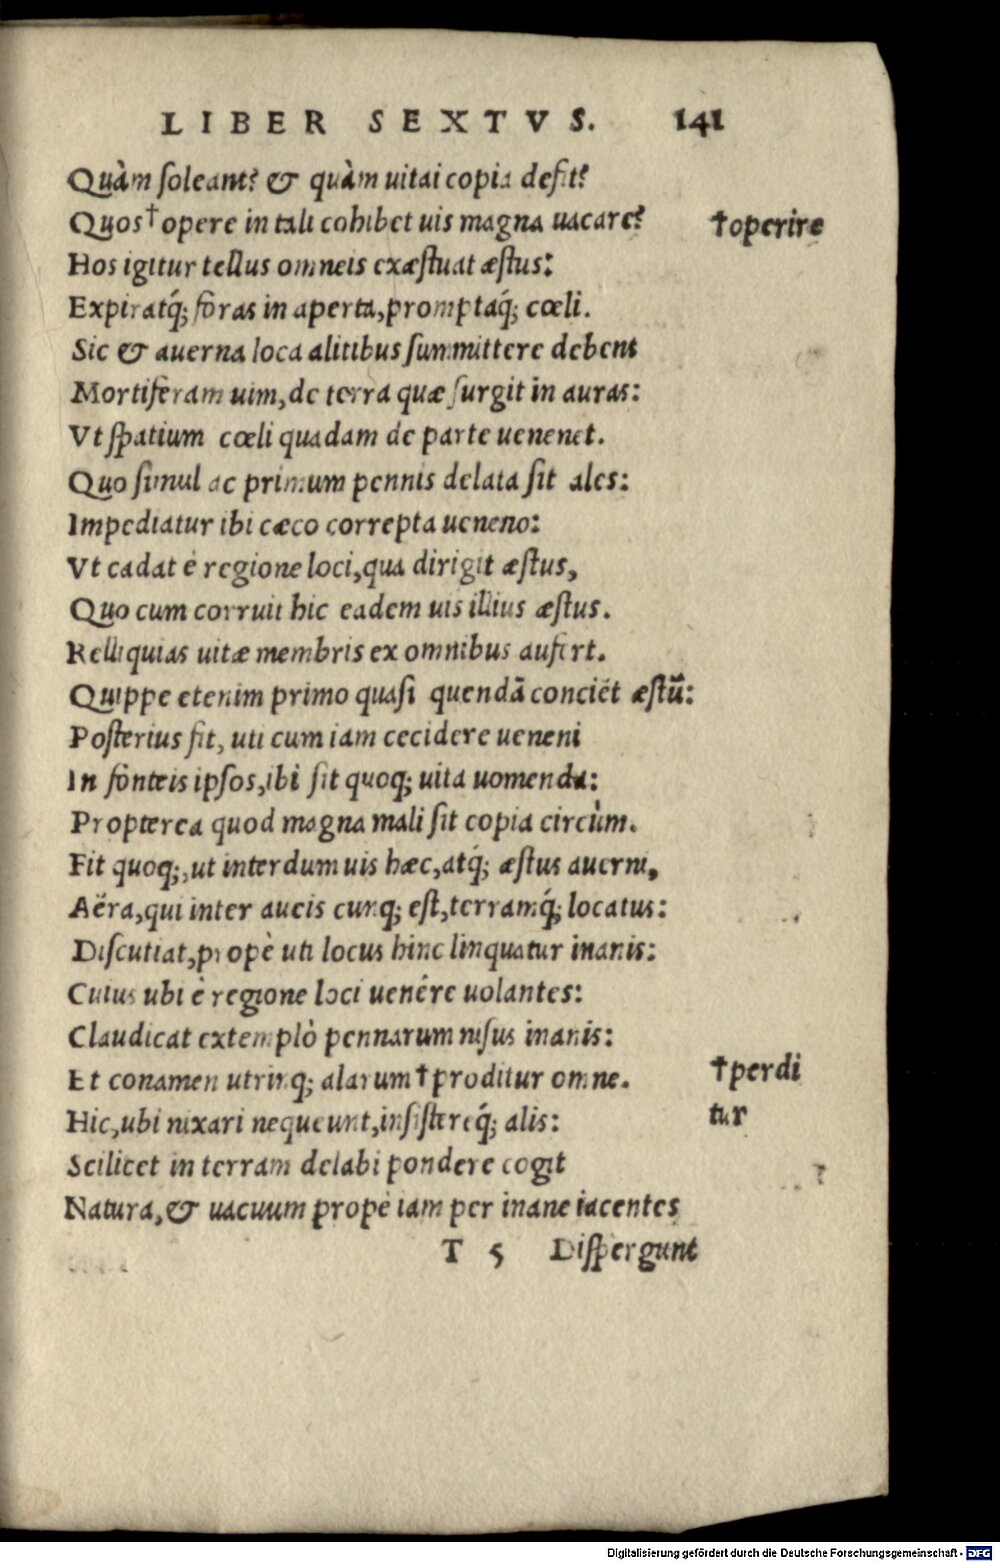 LIBER SEXTVS. 141
Quàm soleant? & quàm uitai copia desit?
Quos † opere in tali cohibet uis magna uacare? †operire
Hos igitur tellus omneis exæstuat æstus:
Expiratq́; foras in aperta, promptaq́; cœli.
Sic & auerna loca alitibus summittere debent
Mortiferam uim, de terra quæ surgit in auras:
Vt spatium cœli quadam de parte uenenet.
Quo simul ac primum pennis delata sit ales:
Impediatur ibi cæco correpta ueneno:
Vt cadat è regione loci, qua dirigit æstus,
Quo cum corruit hic eadem uis illius æstus.
Relliquias uitæ membris ex omnibus aufert.
Quippe etenim primo quasi quendā conciēt æstū:
Posterius fit, uti cum iam cecidere ueneni
In fonteis ipsos, ibi sit quoq; uita uomenda:
Propterea quod magna mali sit copia circùm.
Fit quoq;, ut interdum uis hæc, atq́; æstus auerni,
Aëra, qui inter aueis cunq; est, terramq́; locatus:
Discutiat, propè uti locus hinc linquatur inanis:
Cuius ubi è regione loci uenêre uolantes:
Claudicat extemplò pennarum nisus inanis:
Et conamen utrinq; alarum † proditur omne. †perdi
Hic, ubi nixari nequeunt, insistereq́; alis: tur
Scilicet in terram delabi pondere cogit
Natura, & uacuum propè iam per inane iacentes
T 5 Dispergunt
Digitalisierung gefördert durch die Deutsche Forschungsgemeinschaft - DFG